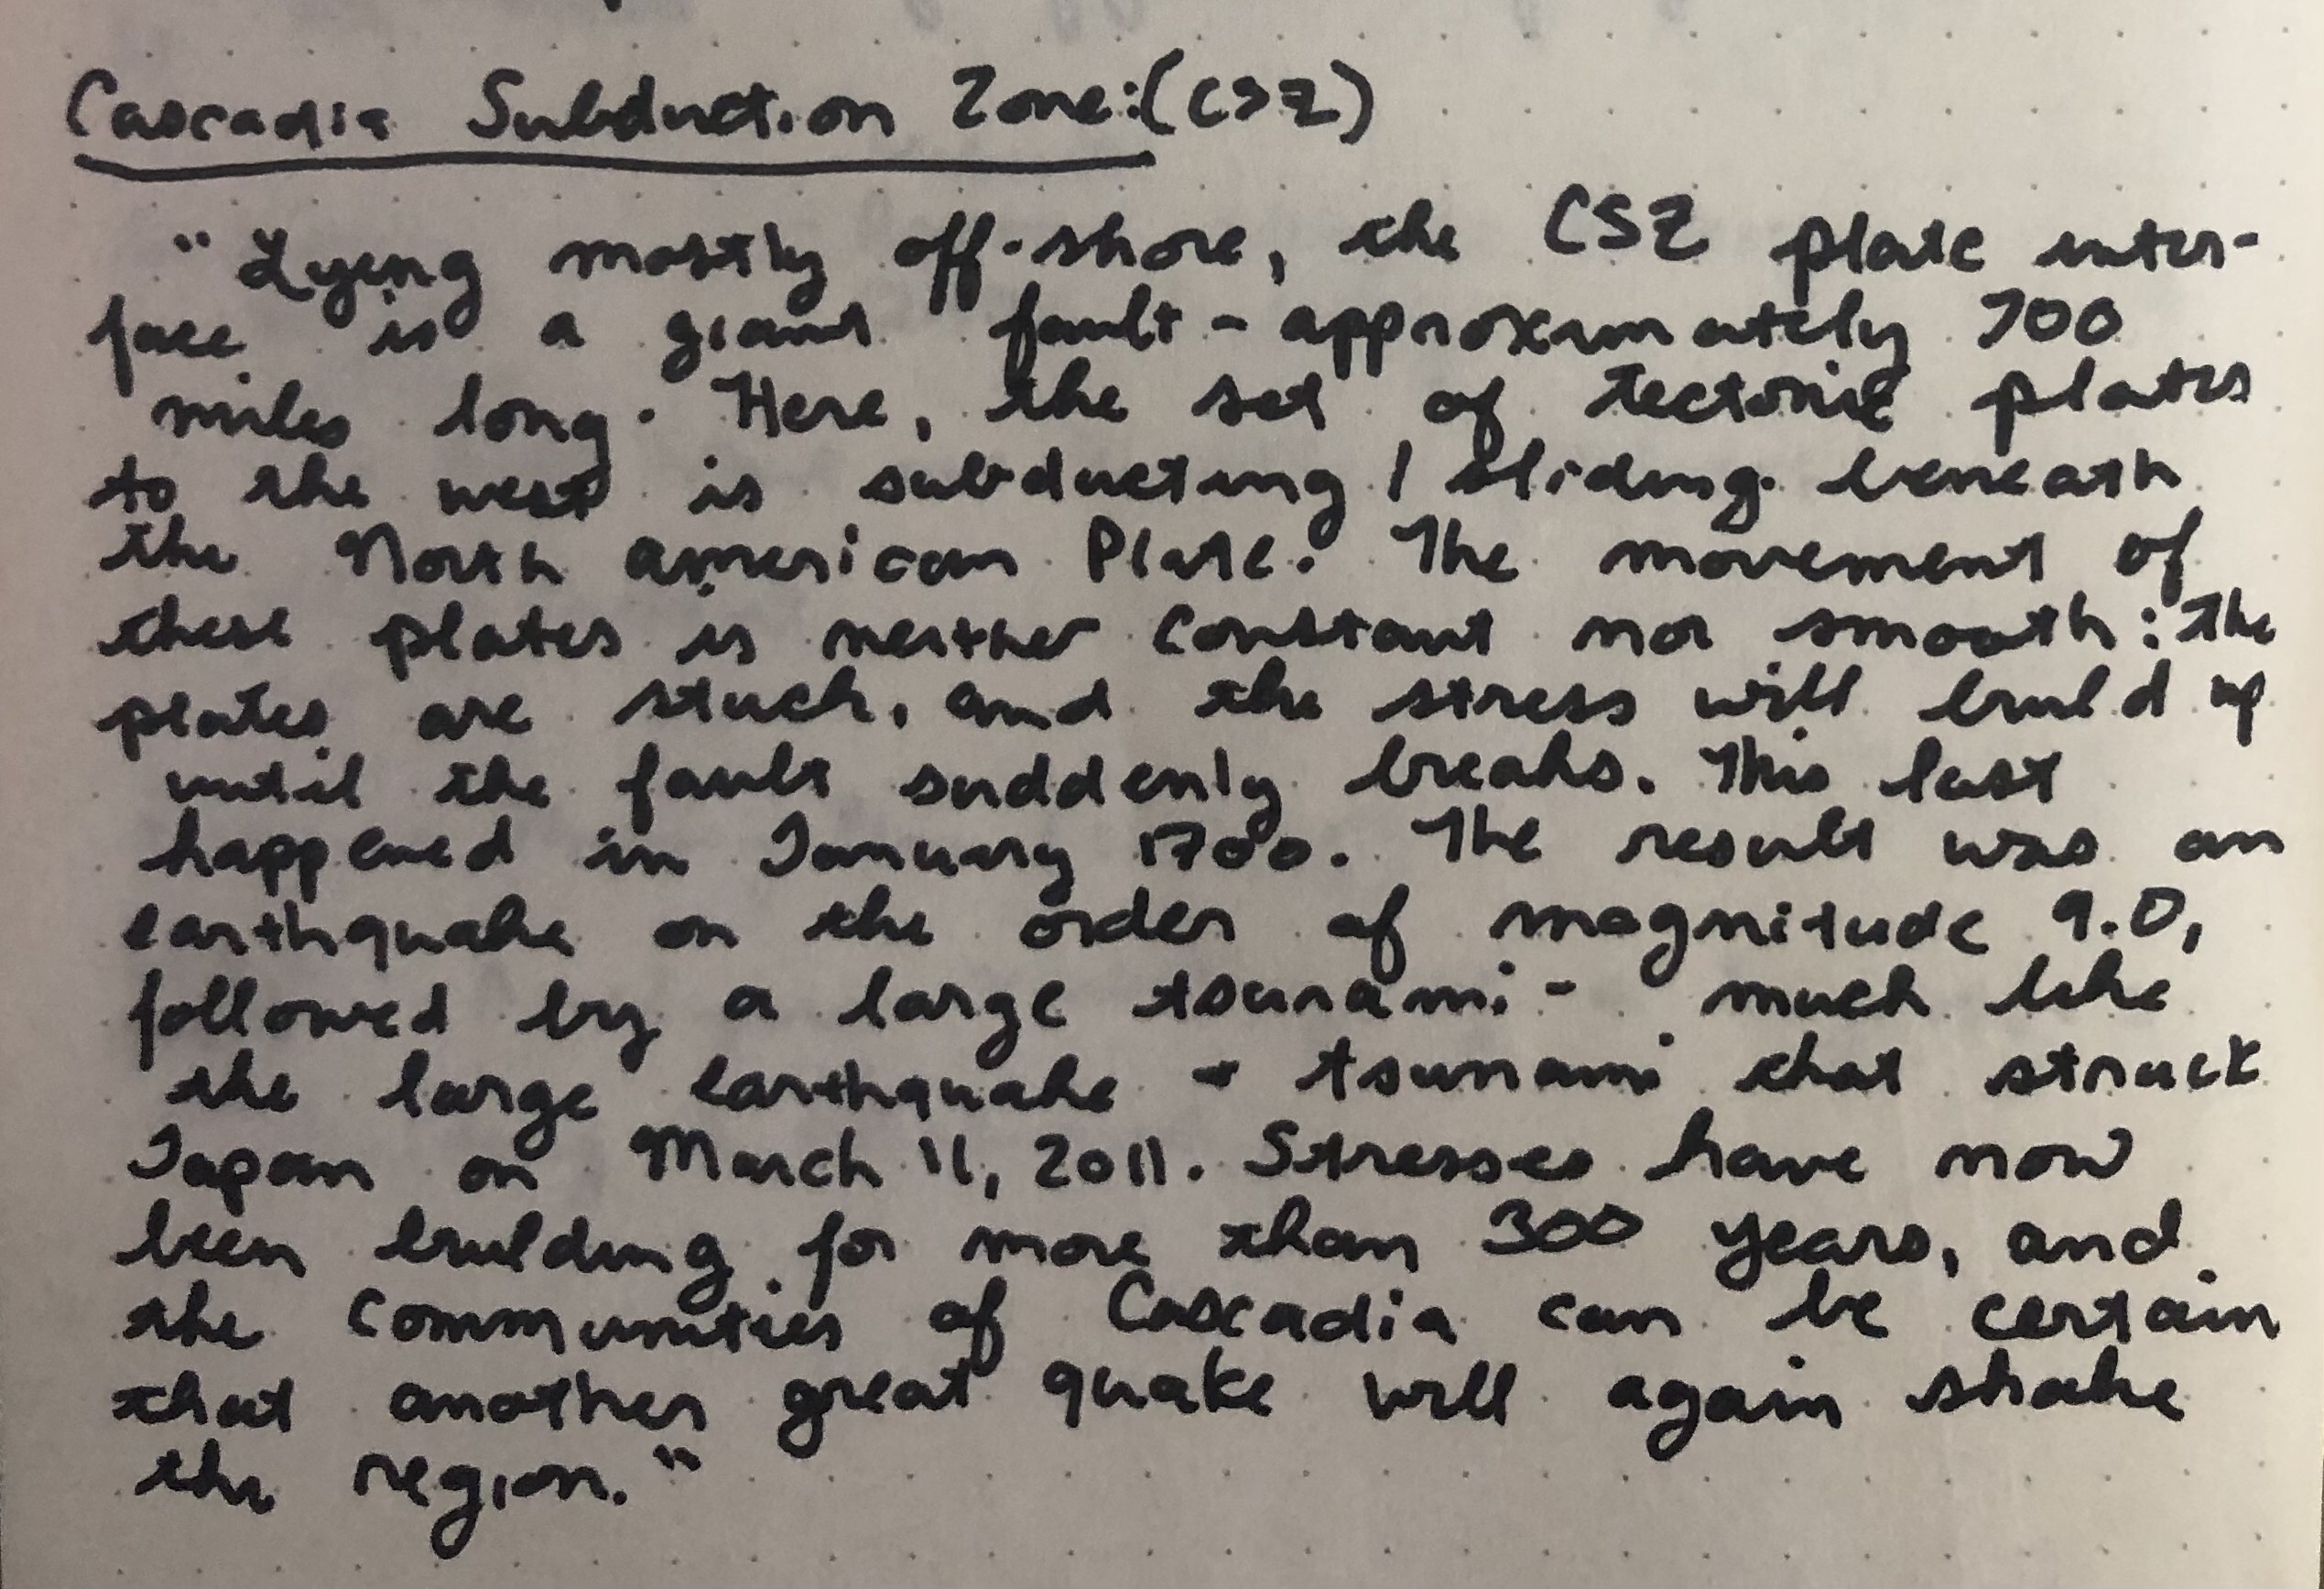 Cascadia Subduction Zone: (CSZ)
"Lying mostly off-shore, the CSZ plate inter-
face is a giant fault - approximately 700
miles long. Here, the set of tectonic plates
to the west is subducting / sliding beneath
the North american Plate. The movement of
these plates is neither constant nor smooth: the
plates are stuck, and the stress will build up
until the fault suddenly breaks. This last
happened in January 1700. The result was an
earthquake on the order of magnitude 9.0,
followed by a large tsunami - much like
the large earthquake + tsunami that struck
Japan on March 11, 2011. Stresses have now
been building for more than 300 years, and
the communities of Cascadia can be certain
that another great quake will again shake
the region."